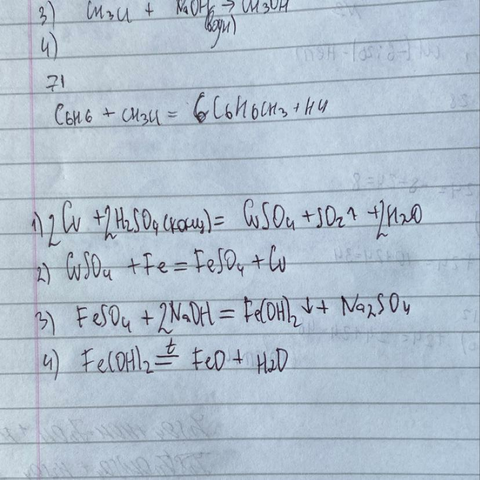 3) CH3Cl + NaOH → CH3OH
(водн)
4)
71
C6H6 + CH3Cl = 6C6H6CH3 + HCl
1) 2Cu + 2H2SO4(конц) = CuSO4 + SO2↑ + 2H2O
2) CuSO4 + Fe = FeSO4 + Cu
3) FeSO4 + 2NaOH = Fe(OH)2↓ + Na2SO4
4) Fe(OH)2 =t FeO + H2O